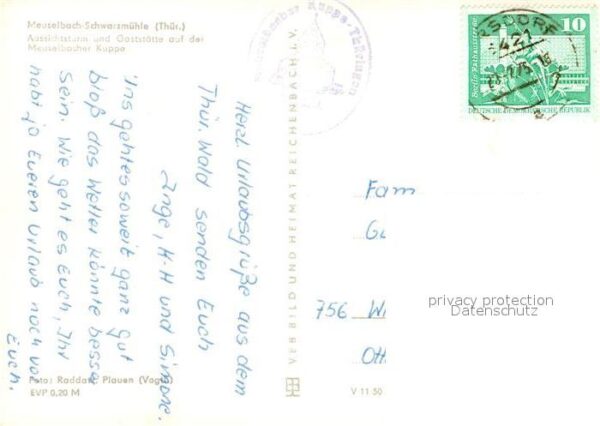 Meuselbach-Schwarzmühle (Thür.)
Aussichtsturm und Gaststätte auf der
Meuselbacher Kuppe
Herzl. Urlaubsgrüße aus dem
Thür. Wald senden Euch
Inge, H-H und Simone.
Uns geht es soweit ganz gut
bloß das Wetter könnte besser
sein. Wie geht es Euch, Ihr
habt ja Eueren Urlaub noch vor
Euch.
Foto: Raddatz, Plauen (Vogtl)
EVP 0,20 M
VEB BILD UND HEIMAT REICHENBACH i. V.
V 11 50
Meuselbacher Kuppe · Thüringen
10
Berlin, Rathausstrasse
DEUTSCHE DEMOKRATISCHE REPUBLIK
RSDORF
6421
Fam
756 Wi
Ott
privacy protection
Datenschutz